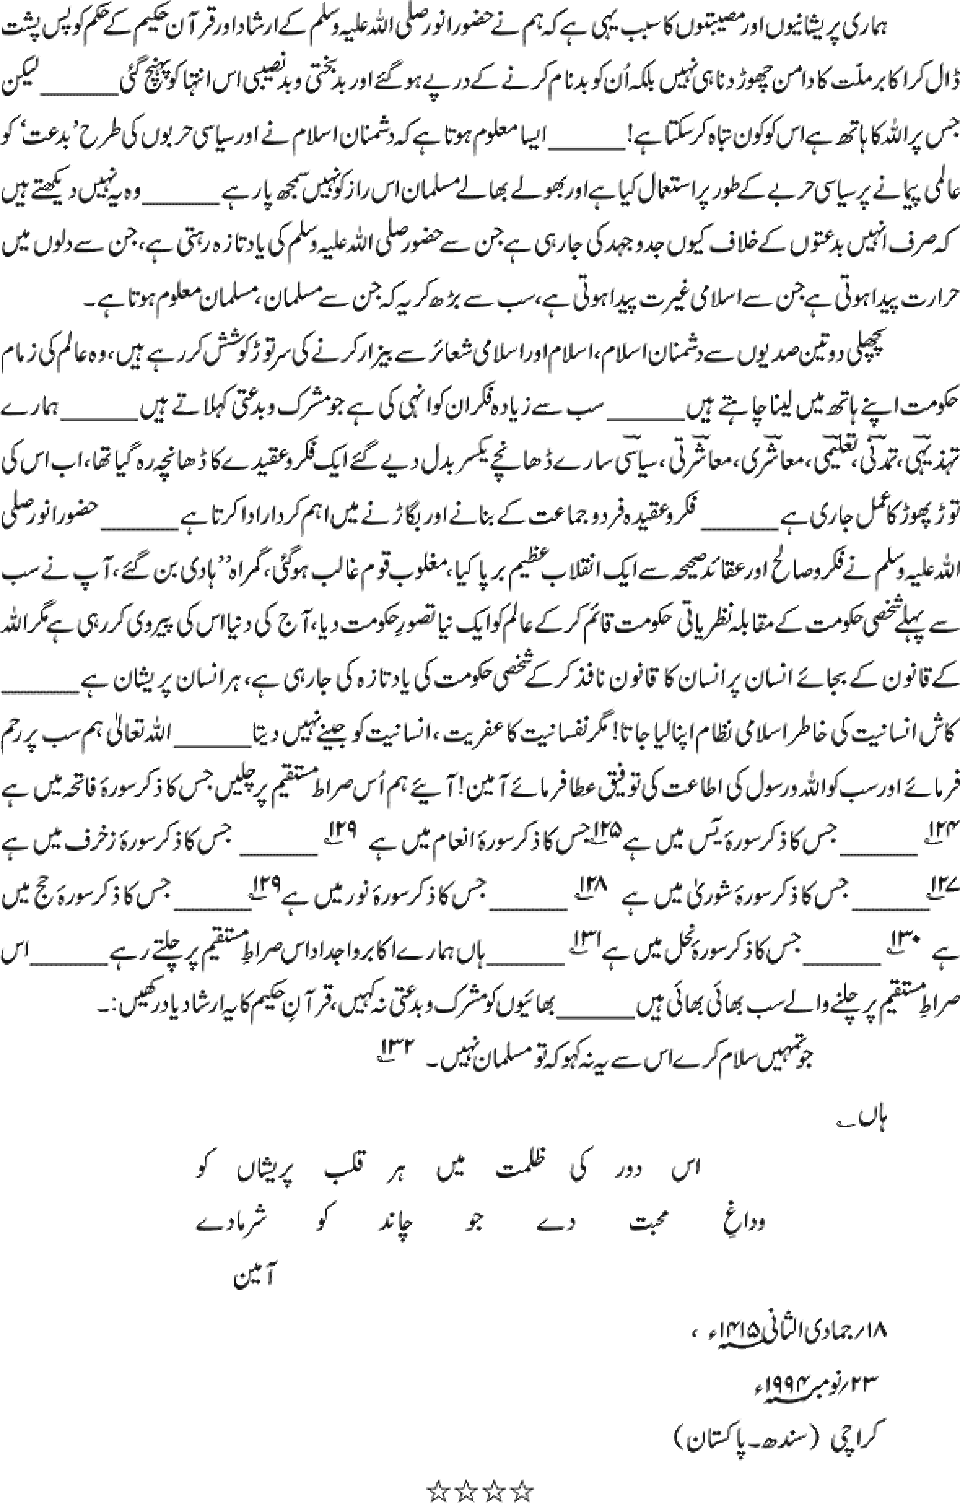 ہماری پریشانیوں اور مصیبتوں کا سبب یہی ہے کہ ہم نے حضور انور صلی اللہ علیہ وسلم کے ارشاد اور قرآن حکیم کے حکم کو پس پشت
ڈال کر اکابر ملّت کا دامن چھوڑ دنا ہی نہیں بلکہ اُن کو بدنام کرنے کے درپے ہو گئے اور بدبختی و بدنصیبی اس انتہا کو پہنچ گئی ______ لیکن
جس پر اللہ کا ہاتھ ہے اس کو کون تباہ کر سکتا ہے! ______ ایسا معلوم ہوتا ہے کہ دشمنان اسلام نے اور سیاسی حربوں کی طرح ’بدعت‘ کو
عالمی پیمانے پر سیاسی حربے کے طور پر استعمال کیا ہے اور بھولے بھالے مسلمان اس راز کو نہیں سمجھ پا رہے ______ وہ یہ نہیں دیکھتے ہیں
کہ صرف انہیں بدعتوں کے خلاف کیوں جدوجہد کی جا رہی ہے جن سے حضور صلی اللہ علیہ وسلم کی یاد تازہ رہتی ہے، جن سے دلوں میں
حرارت پیدا ہوتی ہے جن سے اسلامی غیرت پیدا ہوتی ہے، سب سے بڑھ کر یہ کہ جن سے مسلمان، مسلمان معلوم ہوتا ہے۔
پچھلی دو تین صدیوں سے دشمنان اسلام، اسلام اور اسلامی شعائر سے بیزار کرنے کی سرتوڑ کوشش کر رہے ہیں، وہ عالم کی زمام
حکومت اپنے ہاتھ میں لینا چاہتے ہیں ______ سب سے زیادہ فکر ان کو انہی کی ہے جو مشرک و بدعتی کہلاتے ہیں ______ ہمارے
تہذیبی، تمدنی، تعلیمی، معاشری، معاشرتی، سیاسی سارے ڈھانچے یکسر بدل دیے گئے ایک فکر و عقیدے کا ڈھانچہ رہ گیا تھا، اب اس کی
توڑ پھوڑ کا عمل جاری ہے ______ فکر و عقیدہ فرد و جماعت کے بنانے اور بگاڑنے میں اہم کردار ادا کرتا ہے ______ حضور انور صلی
اللہ علیہ وسلم نے فکر و صالح اور عقائد صحیحہ سے ایک انقلاب عظیم برپا کیا، مغلوب قوم غالب ہو گئی، گمراہ ”ہادی بن گئے، آپ نے سب
سے پہلے شخصی حکومت کے مقابلہ نظریاتی حکومت قائم کر کے عالم کو ایک نیا تصورِ حکومت دیا، آج کی دنیا اس کی پیروی کر رہی ہے مگر اللہ
کے قانون کے بجائے انسان پر انسان کا قانون نافذ کر کے شخصی حکومت کی یاد تازہ کی جا رہی ہے، ہر انسان پریشان ہے ______
کاش انسانیت کی خاطر اسلامی نظام اپنا لیا جاتا! مگر نفسانیت کا عفریت، انسانیت کو جینے نہیں دیتا ______ اللہ تعالیٰ ہم سب پر رحم
فرمائے اور سب کو اللہ و رسول کی اطاعت کی توفیق عطا فرمائے آمین! آیئے ہم اُس صراط مستقیم پر چلیں جس کا ذکر سورۂ فاتحہ میں ہے
۱۲۴ ______ جس کا ذکر سورۂ یٰس میں ہے ۱۲۵ جس کا ذکر سورۂ انعام میں ہے ۱۲۹ ______ جس کا ذکر سورۂ زخرف میں ہے
۱۲۷ ______ جس کا ذکر سورۂ شوریٰ میں ہے ۱۲۸ ______ جس کا ذکر سورۂ نور میں ہے ۱۲۹ ______ جس کا ذکر سورۂ حج میں
ہے ۱۳۰ ______ جس کا ذکر سورۂ نحل میں ہے ۱۳۱ ______ ہاں ہمارے اکابر و اجداد اس صراطِ مستقیم پر چلتے رہے ______ اس
صراطِ مستقیم پر چلنے والے سب بھائی بھائی ہیں ______ بھائیوں کو مشرک و بدعتی نہ کہیں، قرآنِ حکیم کا یہ ارشاد یاد رکھیں:۔
جو تمہیں سلام کرے اس سے یہ نہ کہو کہ تو مسلمان نہیں۔ ۱۳۲
ہاں؎
اس دور کی ظلمت میں ہر قلب پریشاں کو
وداغِ محبت دے جو چاند کو شرما دے
آمین
۱۸؍ جمادی الثانی ۱۴۱۵ء ،
۲۳؍ نومبر ۱۹۹۴ء
کراچی (سندھ۔ پاکستان)
☆☆☆☆